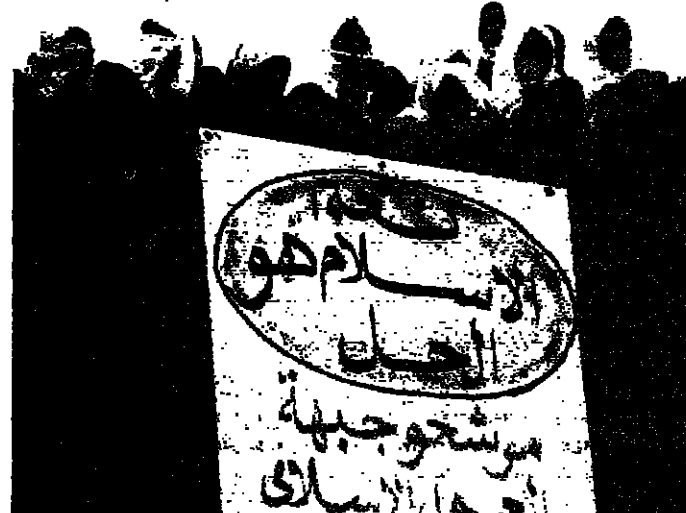 الاسلام هو
الحل
مرشحو جبهة
الاسلامي